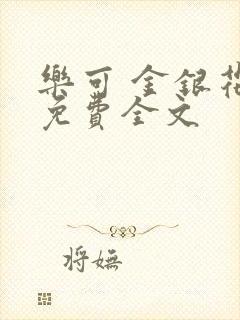 樂可 金銀花
免費全文
將嫵